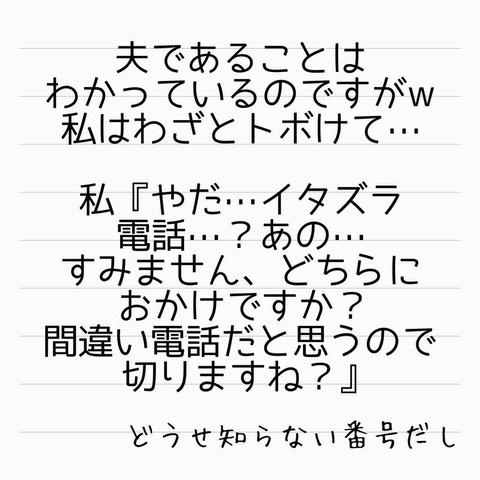 夫であることは
わかっているのですがw
私はわざとトボけて…
私『やだ…イタズラ
電話…？あの…
すみません、どちらに
おかけですか？
間違い電話だと思うので
切りますね？』
どうせ知らない番号だし